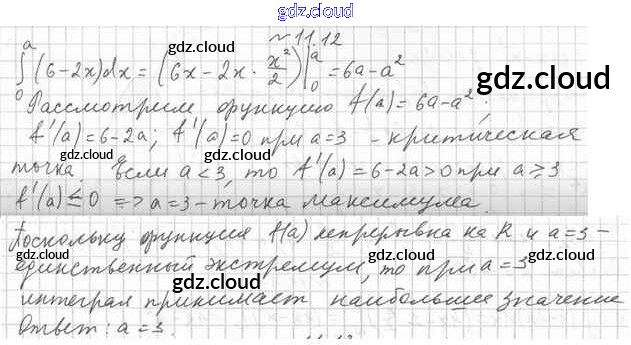 gdz.cloud
№ 11.12
∫₀ᵃ (6-2x)dx = (6x-2x·x²/2)|₀ᵃ = 6a-a²
Рассмотрим функцию f(a)=6a-a²;
f'(a)=6-2a; f'(a)=0 при a=3 -критическая
точка. Если a<3, то f'(a)=6-2a>0 при a⩾3
f'(a)≤0 => a=3-точка максимума.
Поскольку функция f(a) непрерывна на R и a=3-
единственный экстремум, то при a=3
интеграл принимает наибольшее значение
Ответ: a=3.
gdz.cloud
gdz.cloud
gdz.cloud
gdz.cloud
gdz.cloud
gdz.cloud
gdz.cloud
gdz.cloud
gdz.cloud
gdz.cloud